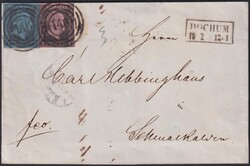 BOCHUM
19 2 12-1
Herrn
Carl Hebbinghaus
fco.
Schmalkalden